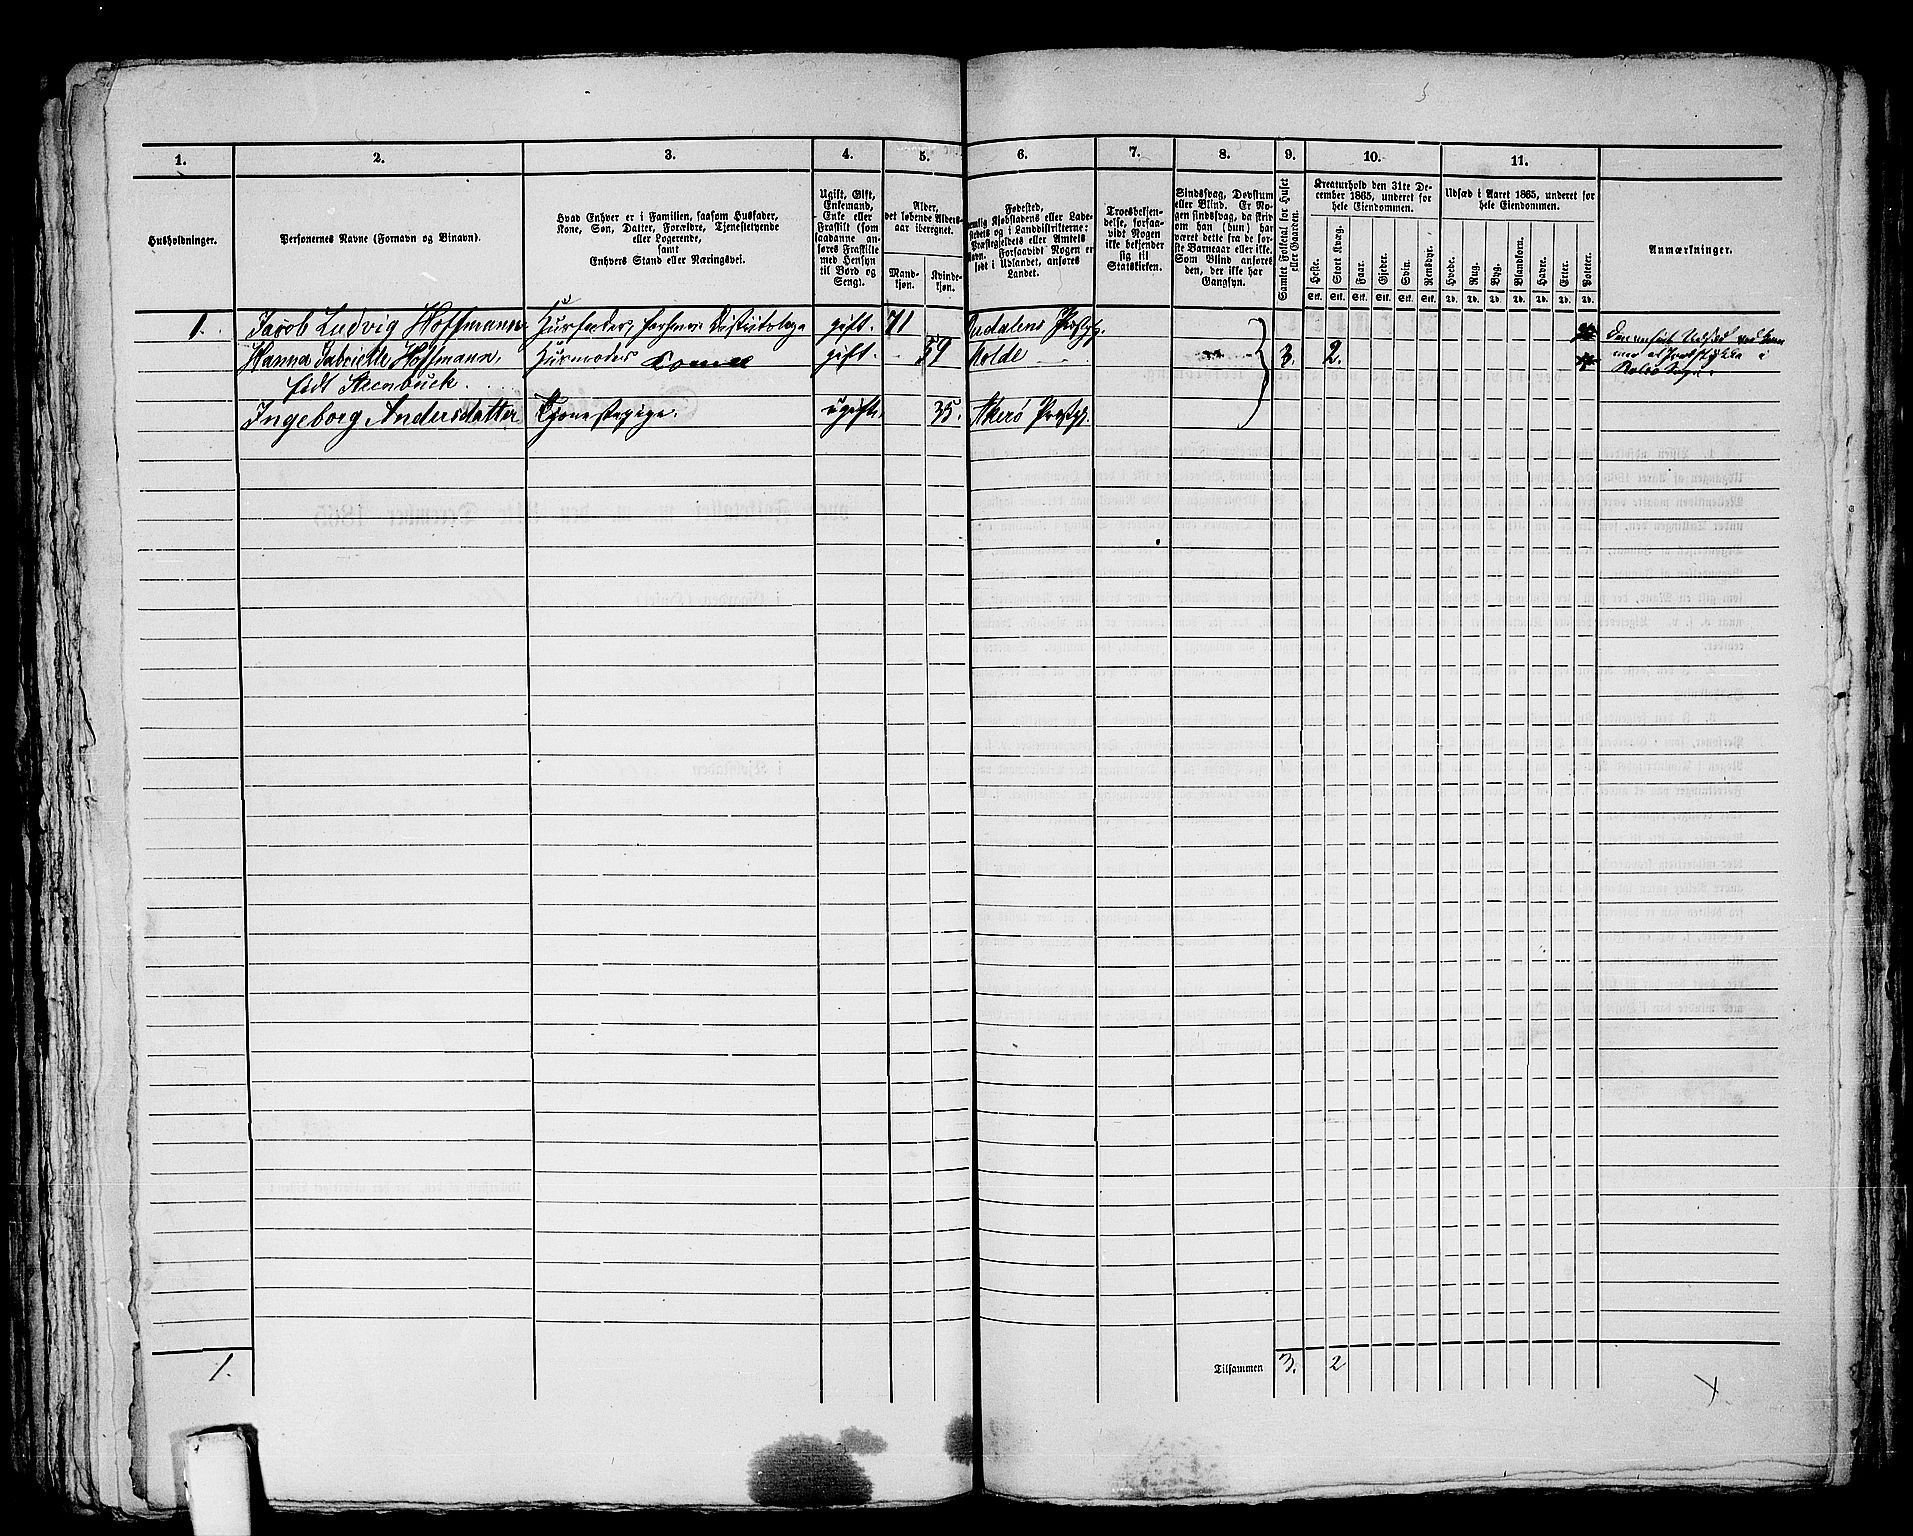 1. 2. 3. 4. 5. 6. 7. 8. 9. 10. 11.
Husholdninger.
Personernes Navne (Fornavn og Binavn).
Hvad Enhver er i Familien, saasom Husfader,
Kone, Søn, Datter, Forældre, Tjenestetyende
eller Logerende,
samt
Enhvers Stand eller Næringsvei.
Ugift, Gift,
Enkemand,
Enke eller
Fraskilt (som
saadanne an-
føres Fraskilte
med Hensyn
til Bord og
Seng).
Alder,
det løbende Alders-
aar iberegnet.
Mand-
kjøn.
Kvinde-
kjøn.
Fødested,
nemlig Kjøbstadens eller Lade-
stedets og i Landdistrikterne:
Præstegjeldets eller Amtets
Navn. Forsaavidt Nogen er
født i Udlandet, anføres
Landet.
Troesbekjen-
delse, forsaa-
vidt Nogen
ikke bekjender
sig til
Statskirken.
Sindssvag, Døvstum
eller Blind. Er No-
gen sindssvag, da skriv
om han (hun) har
været dette fra de før-
ste Barneaar eller ikke.
Som Blind anføres
den, der ikke har
Gangsyn.
Samlet Folketal for Huset
eller Gaarden.
Kreaturhold den 31te De-
cember 1865, underet for
hele Eiendommen.
Heste. Stort Kvæg. Faar. Gjeder. Svin. Rensdyr.
Stk. Stk. Stk. Stk. Stk. Stk.
Udsæd i Aaret 1865, underet for
hele Eiendommen.
Hvede. Rug. Byg. Blandkorn. Havre. Erter. Poteter.
Td. Td. Td. Td. Td. Td. Td.
Anmærkninger.
1. Jacob Ludvig Hoffmann Husfader, gift. 71
Hanna Gabrielle Hoffmann, Husmoder Kone gift. 59 Molde 3. 2.
født Steenbuck.
Ingeborg Andersdatter Tjenestepige. ugift. 35. Akerø Præstgj.
1. Tilsammen 3. 2